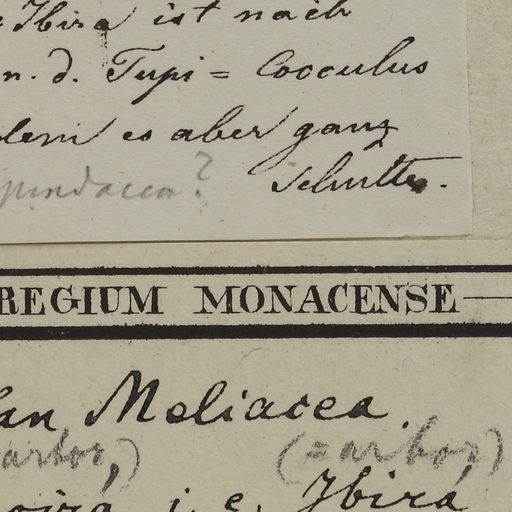 Ibira ist nach
n. d. Tupi = Cocculus
es aber ganz
Schultes.
REGIUM MONACENSE
an Meliacea.
arbor,) (= arbor)
i. e. Ibira